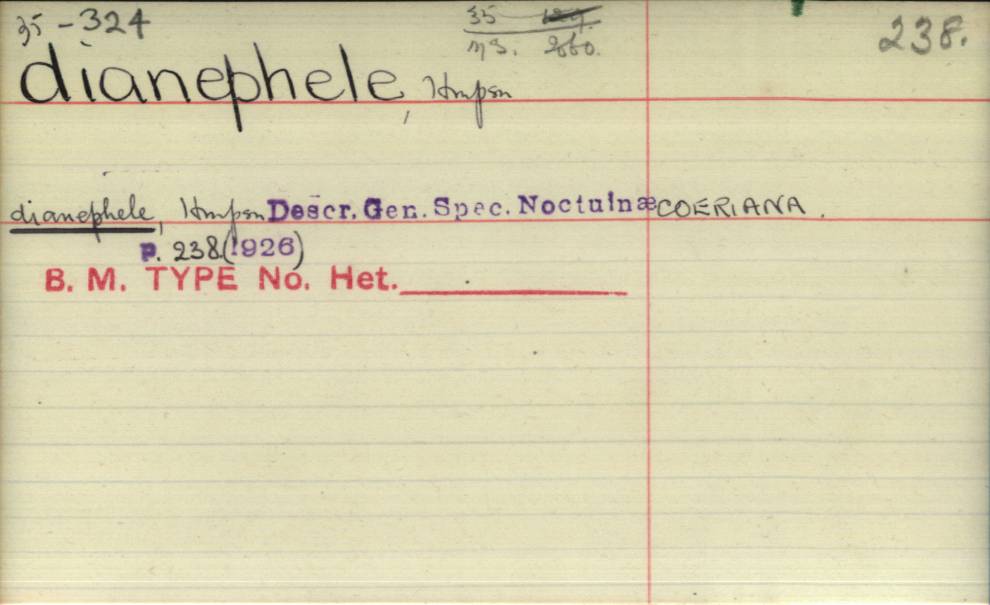 35-324
35
238.
M.S. 2660.
dianephele, Hmpsn
dianephele, Hmpsn Descr. Gen. Spec. Noctuinæ COERIANA.
P. 238 (1926)
B. M. TYPE No. Het.